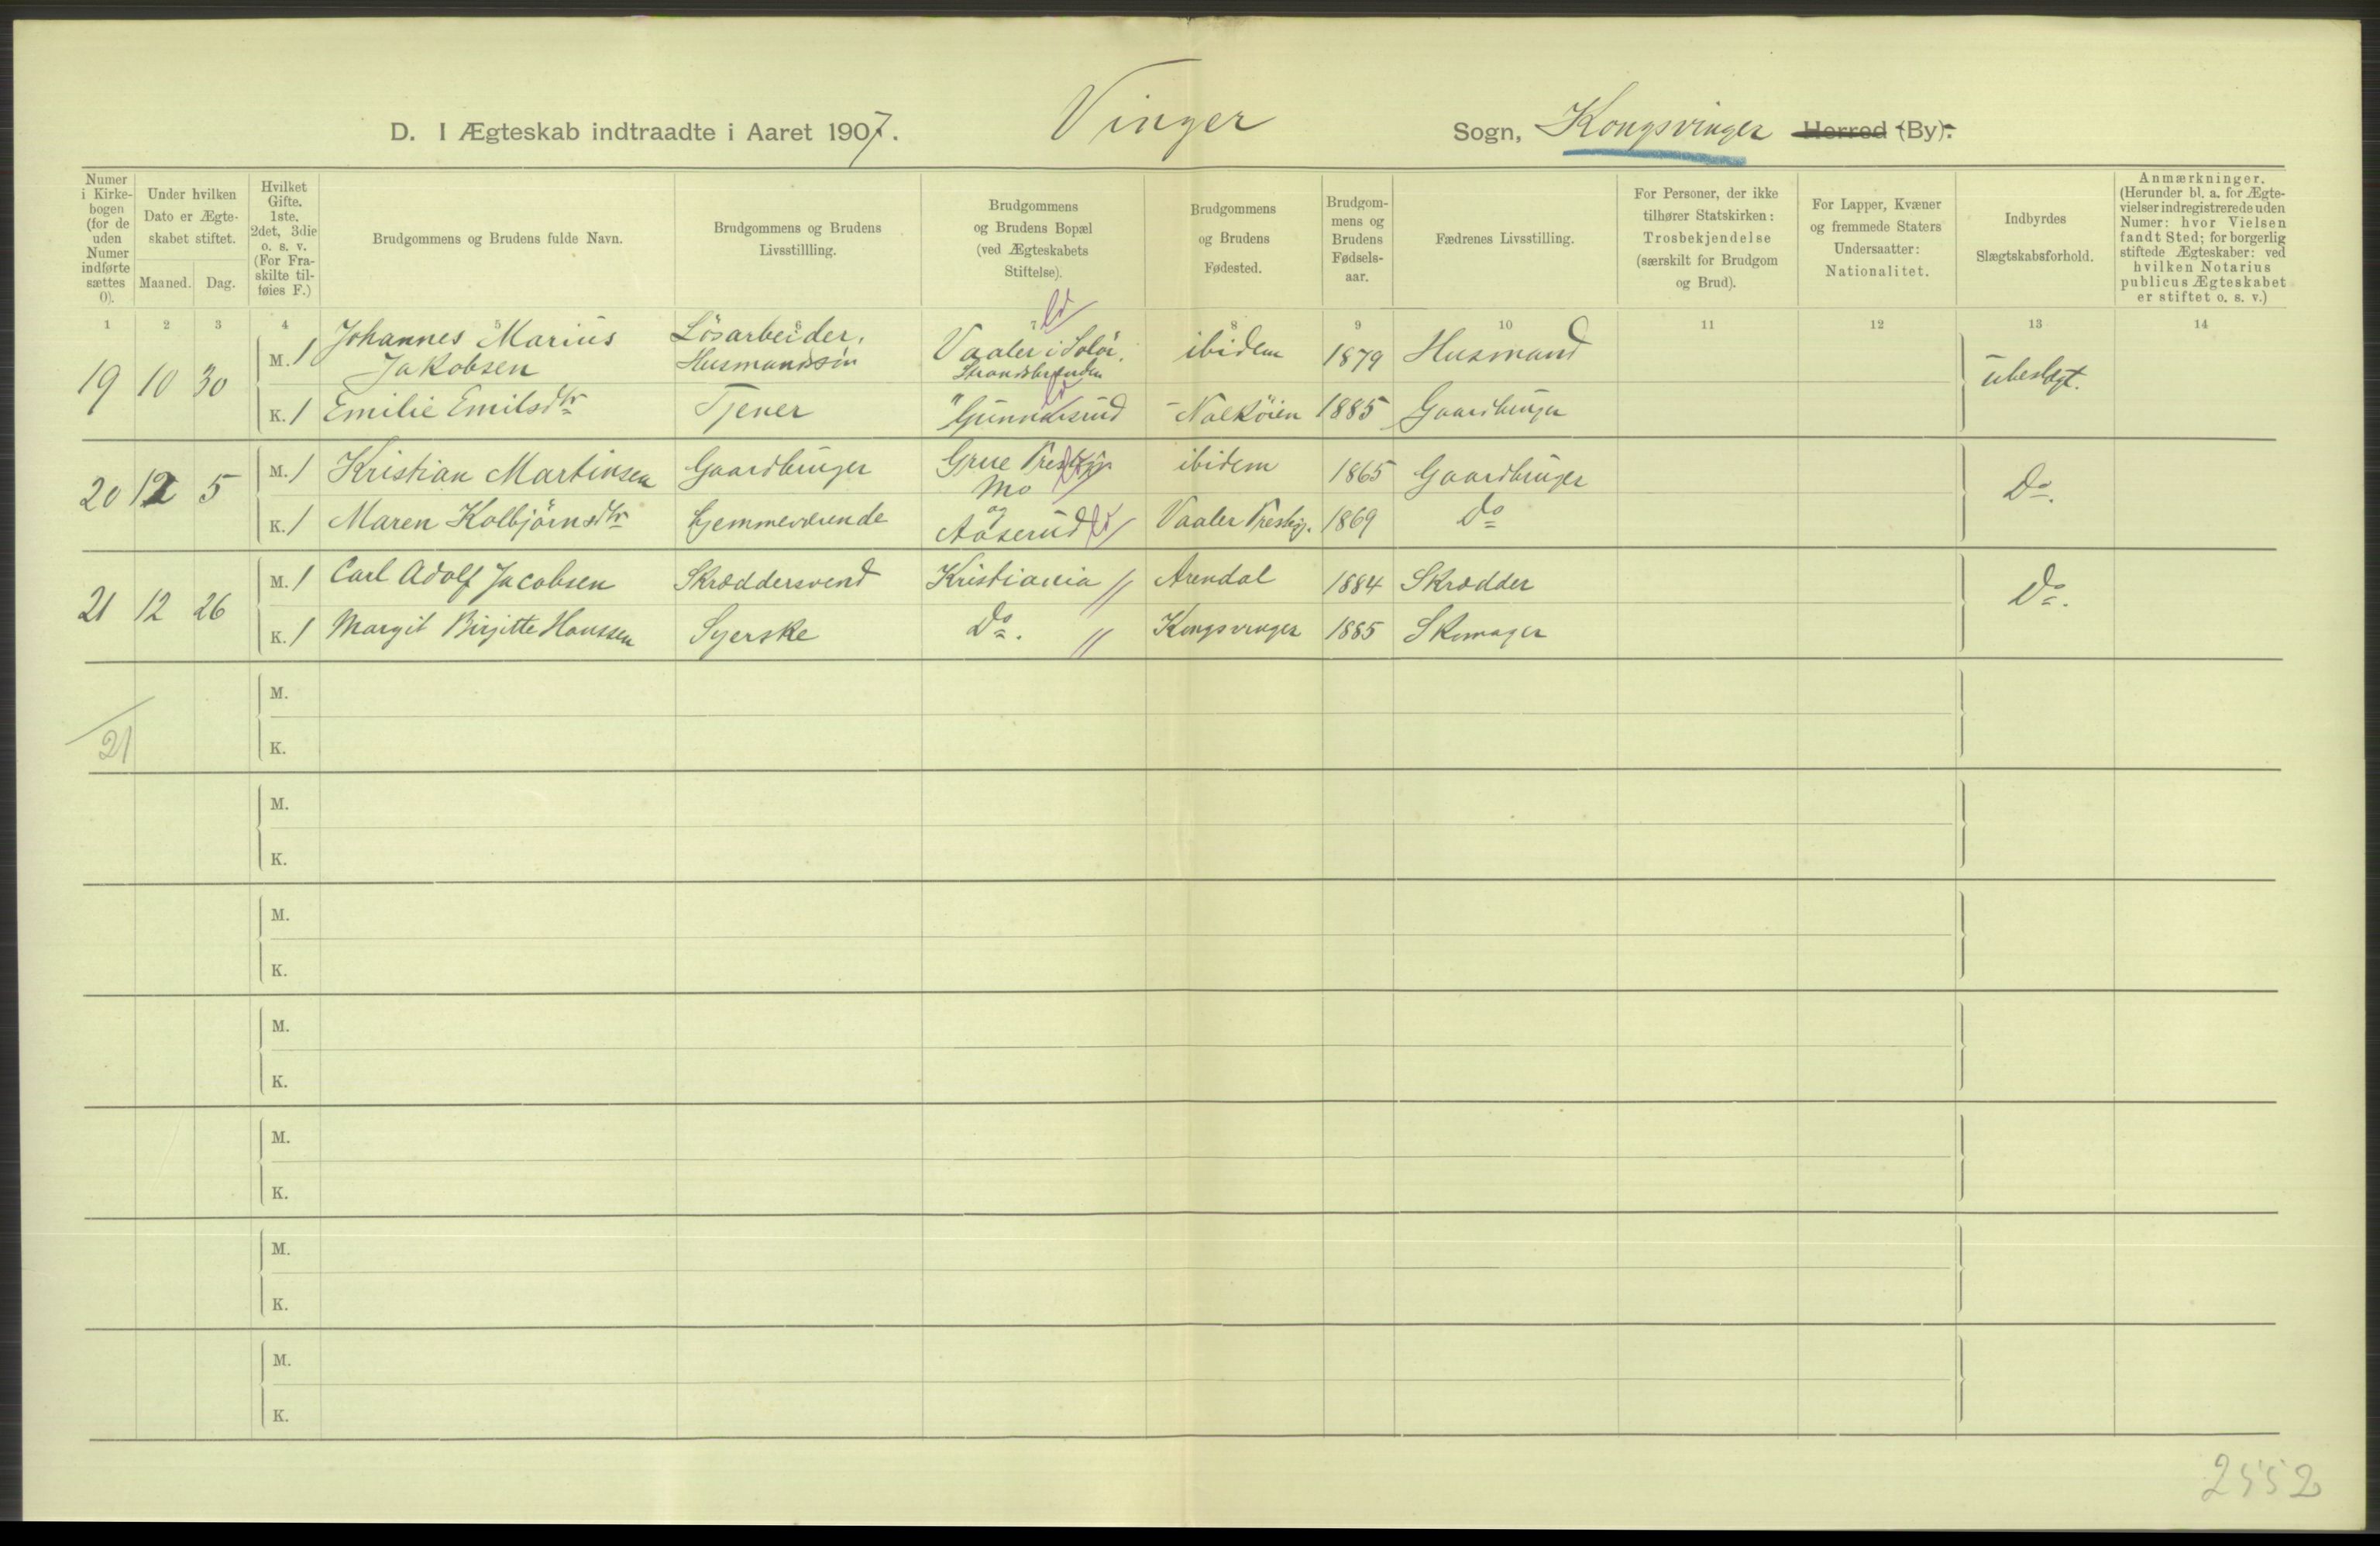 D. I Ægteskab indtraadte i Aaret 1907. Vinger Sogn, Kongsvinger Herred (By).
Numer i Kirkebogen (for de uden Numer indførte sættes 0).
Under hvilken Dato er Ægteskabet stiftet.
Maaned. Dag.
Hvilket Gifte. 1ste. 2det, 3die o. s. v. (For Fraskilte tilføies F.)
Brudgommens og Brudens fulde Navn.
Brudgommens og Brudens Livsstillling.
Brudgommens og Brudens Bopæl (ved Ægteskabets Stiftelse).
Brudgommens og Brudens Fødested.
Brudgommens og Brudens Fødselsaar.
Fædrenes Livsstilling.
For Personer, der ikke tilhører Statskirken: Trosbekjendelse (særskilt for Brudgom og Brud).
For Lapper, Kvæner og fremmede Staters Undersaatter: Nationalitet.
Indbyrdes Slægtskabsforhold.
Anmærkninger. (Herunder bl. a. for Ægtevielser indregistrerede uden Numer: hvor Vielsen fandt Sted; for borgerlig stiftede Ægteskaber: ved hvilken Notarius publicus Ægteskabet er stiftet o. s. v.)
1 2 3 4 5 6 7 8 9 10 11 12 13 14
19 10 30 M. 1 Johannes Marius Jakobsen Løsarbeider, Husmandssøn Vaaler i Solør, ibidem 1879 Husmand ubeslægt.
K. 1 Emilie Emilsdtr Tjener 1885 Gaardbruger
20 12 5 M. 1 Kristian Martinsen Gaardbruger Grue Prestegj. Mo ibidem 1865 Gaardbruger Do.
K. 1 Maren Kolbjörnsdtr hjemmeværende og Aaserud Vaaler Prestegj. 1869 Do
21 12 26 M. 1 Carl Adolf Jacobsen Skræddersvend Kristiania Arendal 1884 Skrædder Do.
K. 1 Margit Birgitte Hanssen Syerske Do. Kongsvinger 1885 Skomager
M.
21
K.
M.
K.
M.
K.
M.
K.
M.
K.
M.
K.
M.
K.
2552